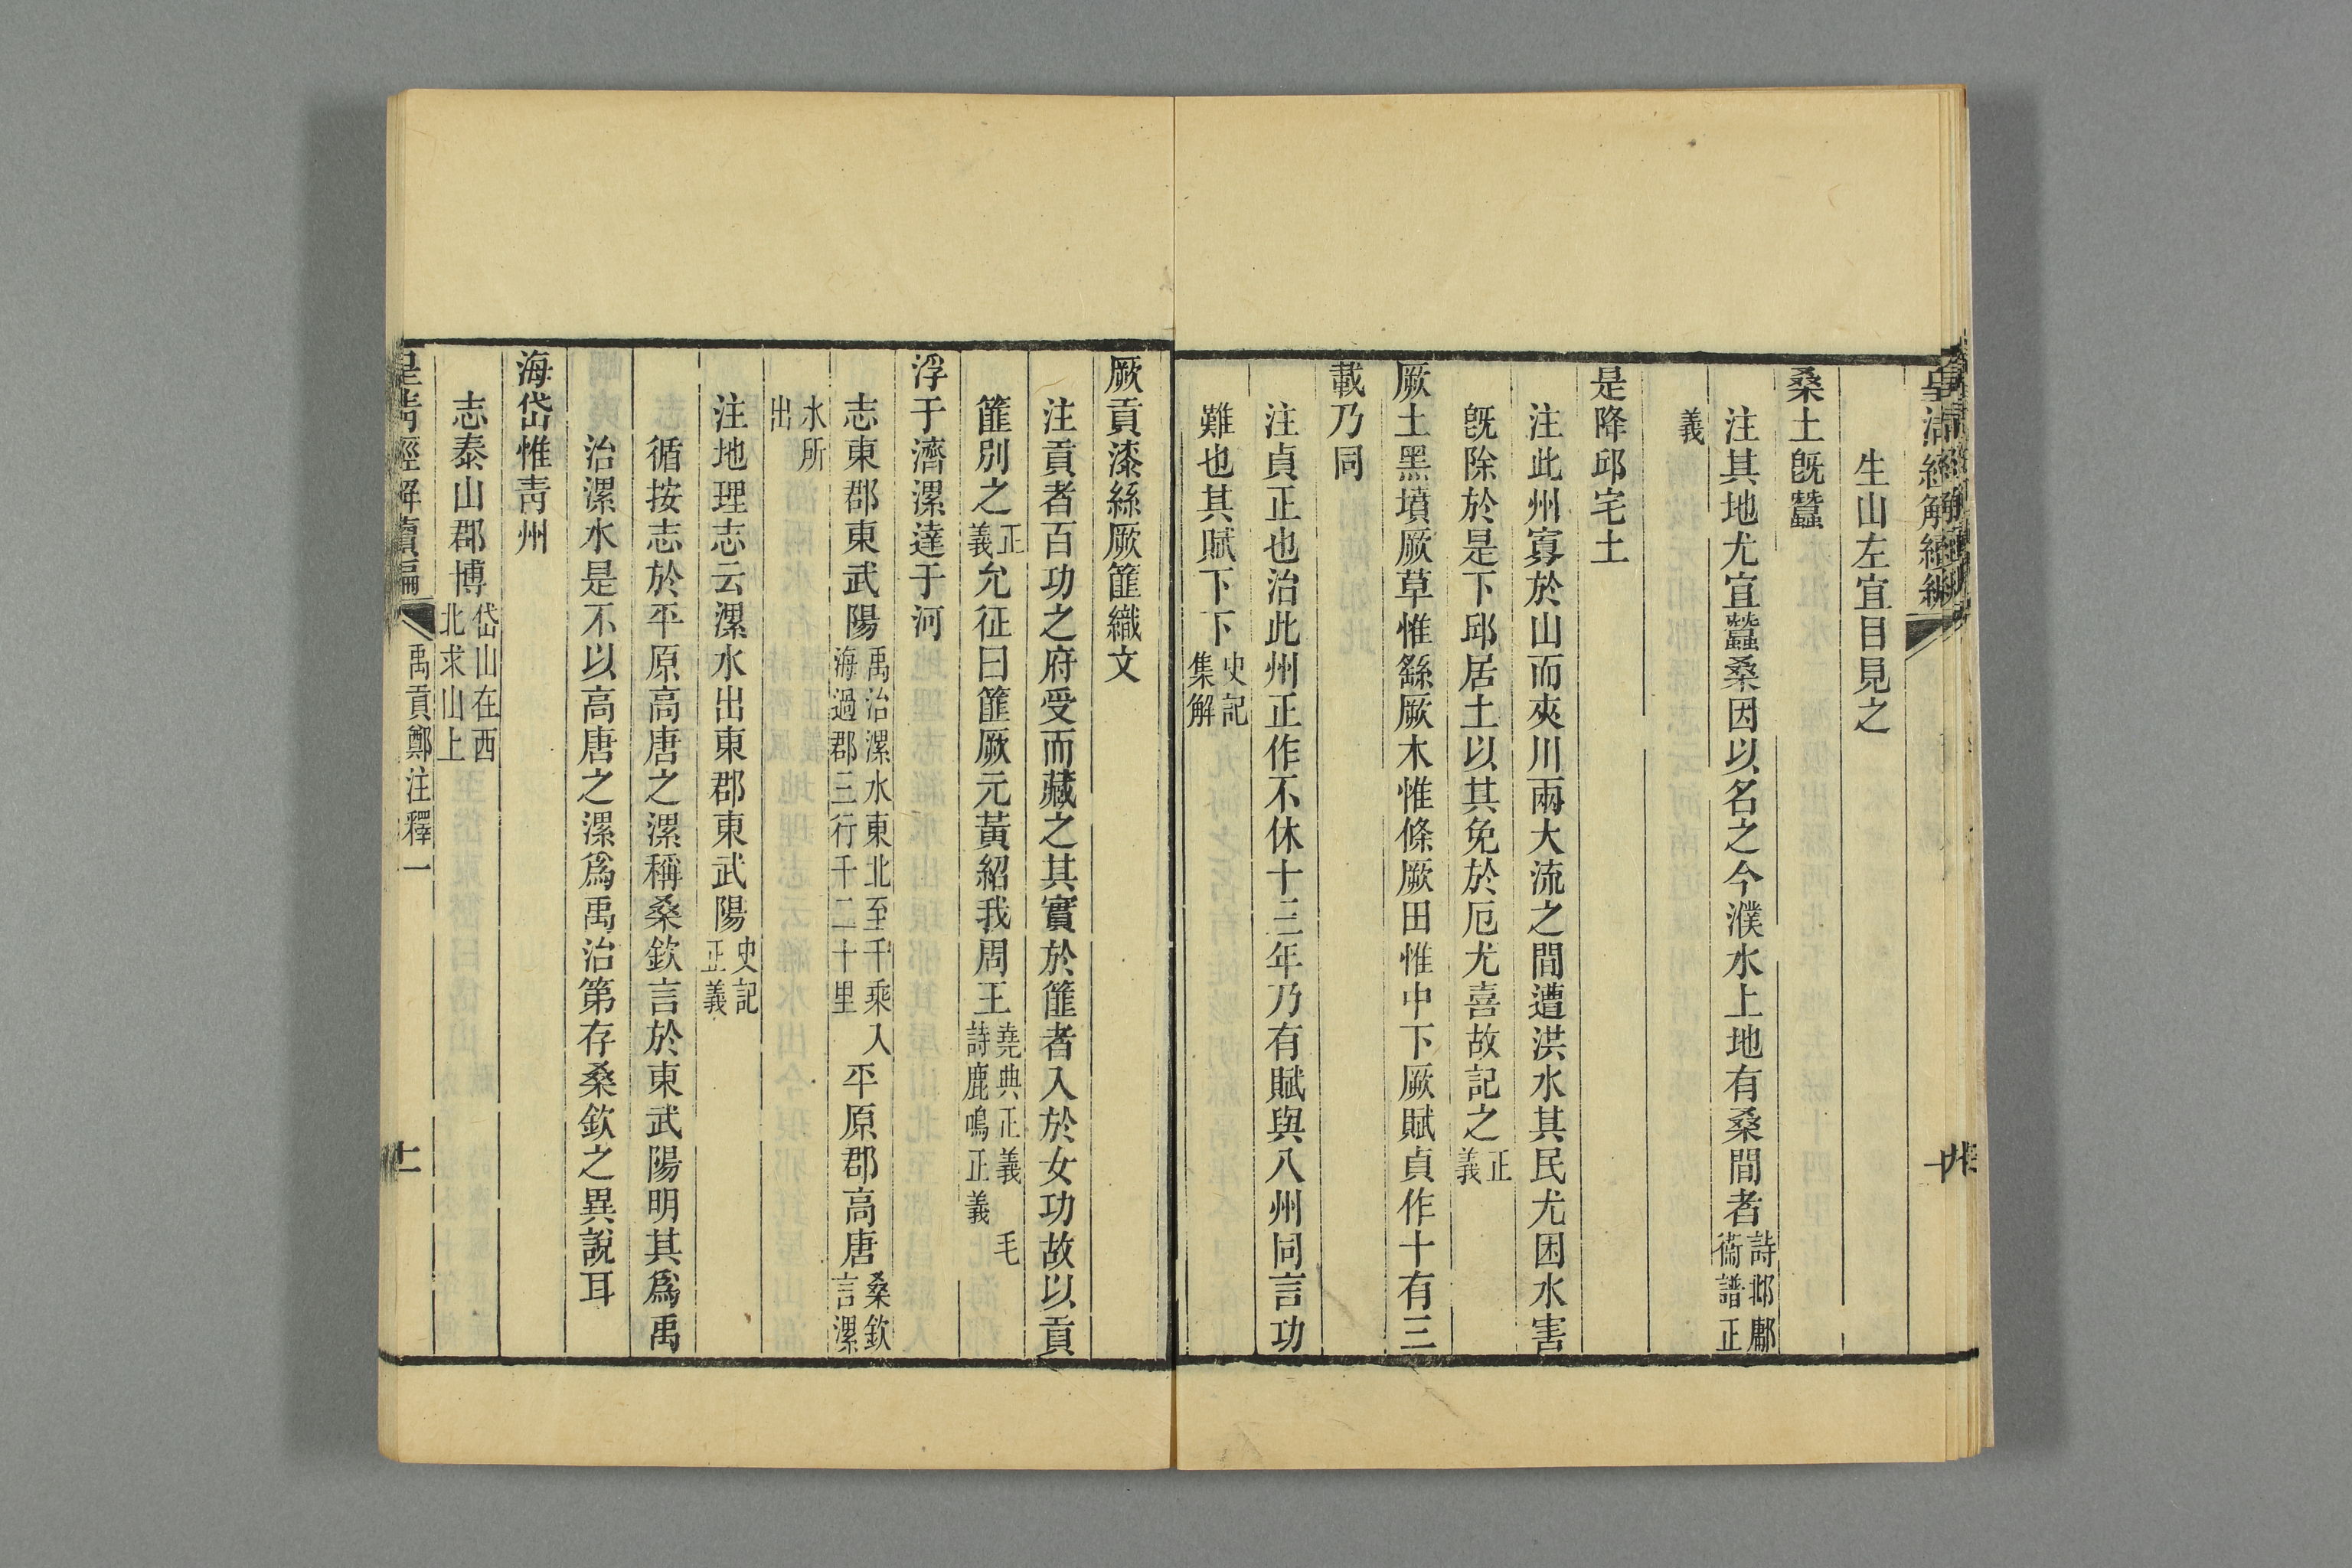 皇清經解續編
生山左宜目見之
桑土旣蠶
注其地尤宜蠶桑因以名之今濮水上地有桑間者詩邶鄘衞譜正
義
是降邱宅土
注此州寡於山而夾川兩大流之間遭洪水其民尤困水害
旣除於是下邱居土以其免於厄尤喜故記之正義
厥土黑墳厥草惟繇厥木惟條厥田惟中下厥賦貞作十有三
載乃同
注貞正也治此州正作不休十三年乃有賦與八州同言功
難也其賦下下史記集解
厥貢漆絲厥篚織文
注貢者百功之府受而藏之其實於篚者入於女功故以貢
篚別之正義允征曰篚厥元黃紹我周王堯典正義 毛詩鹿鳴正義
浮于濟漯達于河
志東郡東武陽禹治漯水東北至千乘入海過郡三行千二十里平原郡高唐桑欽言漯
水所出
注地理志云漯水出東郡東武陽史記正義
循按志於平原高唐之漯稱桑欽言於東武陽明其爲禹
治漯水是不以高唐之漯爲禹治第存桑欽之異說耳
海岱惟靑州
志泰山郡博岱山在西北求山上
皇清經解續編 禹貢鄭注釋一 十一